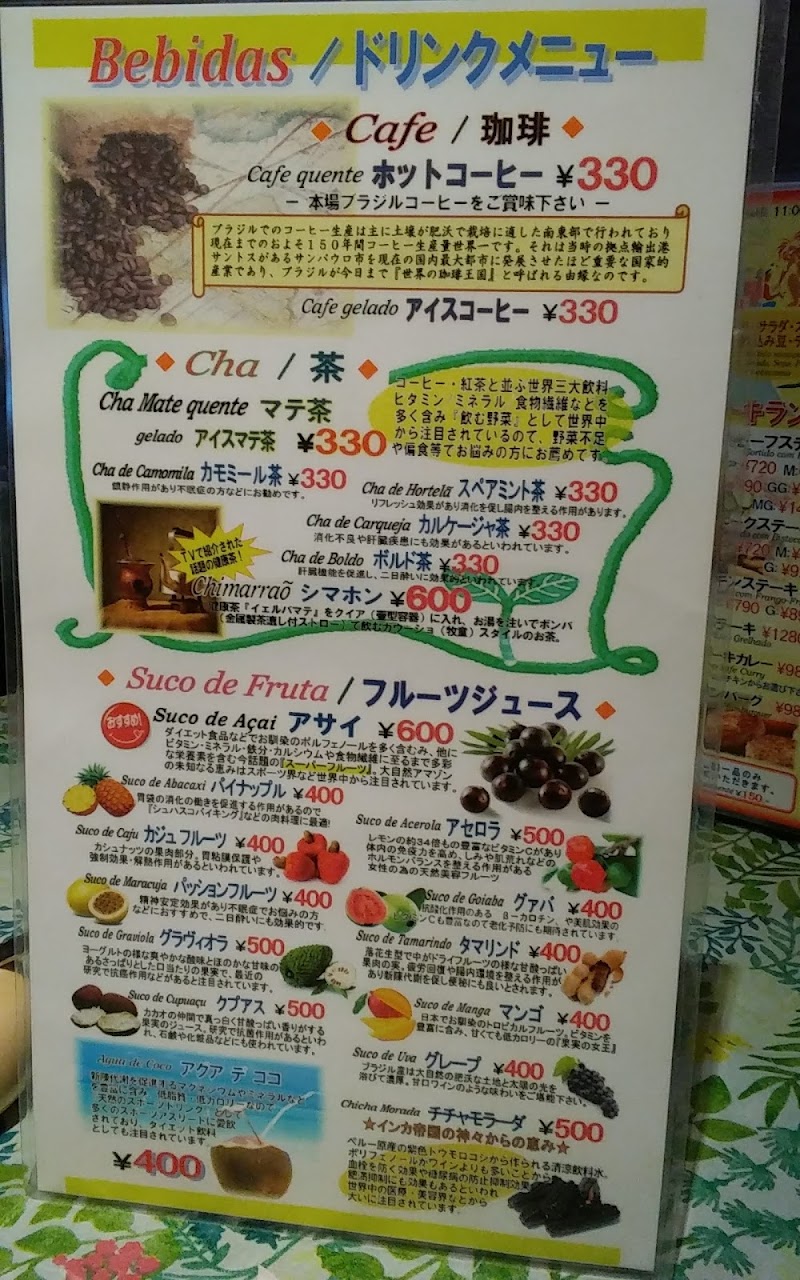 Bebidas / ドリンクメニュー
Cafe / 珈琲
Cafe quente ホットコーヒー ¥330
― 本場ブラジルコーヒーをご賞味下さい ―
ブラジルでのコーヒー生産は主に土壌が肥沃で栽培に適した南東部で行われており
現在までのおよそ150年間コーヒー生産量世界一です。それは当時の拠点輸出港
サントスがあるサンパウロ市を現在の国内最大都市に発展させたほど重要な国家的
産業であり、ブラジルが今日まで『世界の珈琲王国』と呼ばれる由縁なのです。
Cafe gelado アイスコーヒー ¥330
Cha / 茶
Cha Mate quente マテ茶
gelado アイスマテ茶 ¥330
コーヒー・紅茶と並ぶ世界三大飲料
ビタミン ミネラル 食物繊維などを
多く含み『飲む野菜』として世界中
から注目されているので、野菜不足
や偏食等でお悩みの方にお薦めです
Cha de Camomila カモミール茶 ¥330
鎮静作用があり不眠症の方などにお勧めです。
Cha de Hortelã スペアミント茶 ¥330
リフレッシュ効果があり消化を促し腸内を整える作用があります。
Cha de Carqueja カルケージャ茶 ¥330
消化不良や肝臓疾患にも効果があるといわれています。
TVで紹介された
話題の健康茶！
Cha de Boldo ボルド茶 ¥330
肝臓機能を促進し、二日酔いに効果的といわれています。
Chimarraõ シマホン ¥600
健康茶『イェルバマテ』をクイア（壷型容器）に入れ、お湯を注いでボンバ
（金属製茶漉し付ストロー）で飲むガウーショ（牧童）スタイルのお茶。
Suco de Fruta / フルーツジュース
おすすめ!
Suco de Açai アサイ ¥600
ダイエット食品などでお馴染のポルフェノールを多く含むみ、他に
ビタミン・ミネラル・鉄分・カルシウムや食物繊維に至るまで多彩
な栄養素を含む今話題の『スーパーフルーツ』。大自然アマゾン
の未知なる恵みはスポーツ界など世界中から注目されています。
Suco de Abacaxi パイナップル ¥400
胃袋の消化の働きを促進する作用があるので
『シュハスコバイキング』などの肉料理に最適!
Suco de Caju カジュフルーツ ¥400
カシュナッツの果肉部分。胃粘膜保護や
強制効果・解熱作用があるといわれています。
Suco de Maracuja パッションフルーツ ¥400
精神安定効果があり不眠症でお悩みの方
などにおすすめで、二日酔いにも効果的です。
Suco de Graviola グラヴィオラ ¥500
ヨーグルトの様な爽やかな酸味とほのかな甘味の
あるさっぱりとした口当たりの果実で、最近の
研究で抗癌作用などがあると注目されています。
Suco de Cupuaçu クプアス ¥500
カカオの仲間で真っ白く甘酸っぱい香りがする
果実のジュース。研究で抗菌作用があるといわ
れ、石鹸や化粧品などにも使われています。
Agua de Coco アクア デ ココ
新陳代謝を促進するマグネシウムやミネラルなど
を豊富に含み 低脂質・低カロリーなので
『天然のスポーツドリンク』として
多くのスポーツアスリートに愛飲
されており、ダイエット飲料
としても注目されています。
¥400
Suco de Acerola アセロラ ¥500
レモンの約34倍もの豊富なビタミンCがあり
体内の免疫力を高め、しみや肌荒れなどの
ホルモンバランスを整える作用がある
女性の為の天然美容フルーツ
Suco de Goiaba グァバ ¥400
抗酸化作用のある βーカロテン、や美肌効果の
ビタミンCも豊富なので老化予防にも期待されています。
Suco de Tamarindo タマリンド ¥400
落花生型で中がドライフルーツの様な甘酸っぱい
果肉の実。疲労回復や腸内環境を整える作用が
あり新陳代謝を促し便秘にも良いとされます。
Suco de Manga マンゴ ¥400
日本でお馴染のトロピカルフルーツ。ビタミンを
豊富に含み、甘くても低カロリーの『果実の女王』
Suco de Uva グレープ ¥400
ブラジル産は大自然の肥沃な土地と太陽の光を
浴びて濃厚。甘口ワインのような味わいをご堪能下さい。
Chicha Morada チチャモラーダ ¥500
★インカ帝國の神々からの恵み☆
ペルー原産の紫色トウモロコシから作られる清涼飲料水。
ポリフェノールがワインよりも多いことから
血栓を防ぐ効果や糖尿病の防止抑制効果
肥満抑制にも効果もあるといわれ
世界中の医療・美容界などから
大いに注目されています。